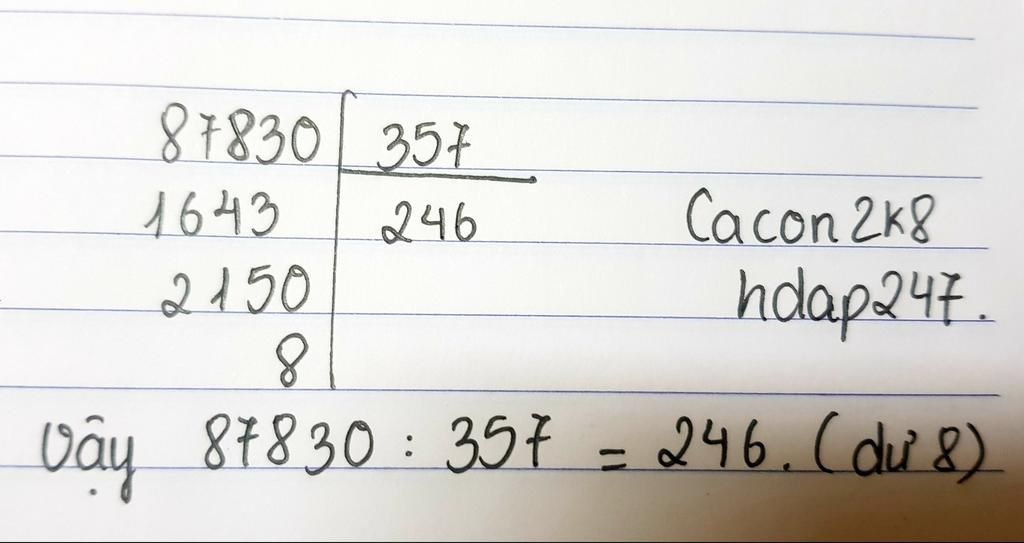 87830 357
1643 246
Cacon2k8
2150
hdap247.
8
Vậy 87830 : 357 = 246. (dư 8)